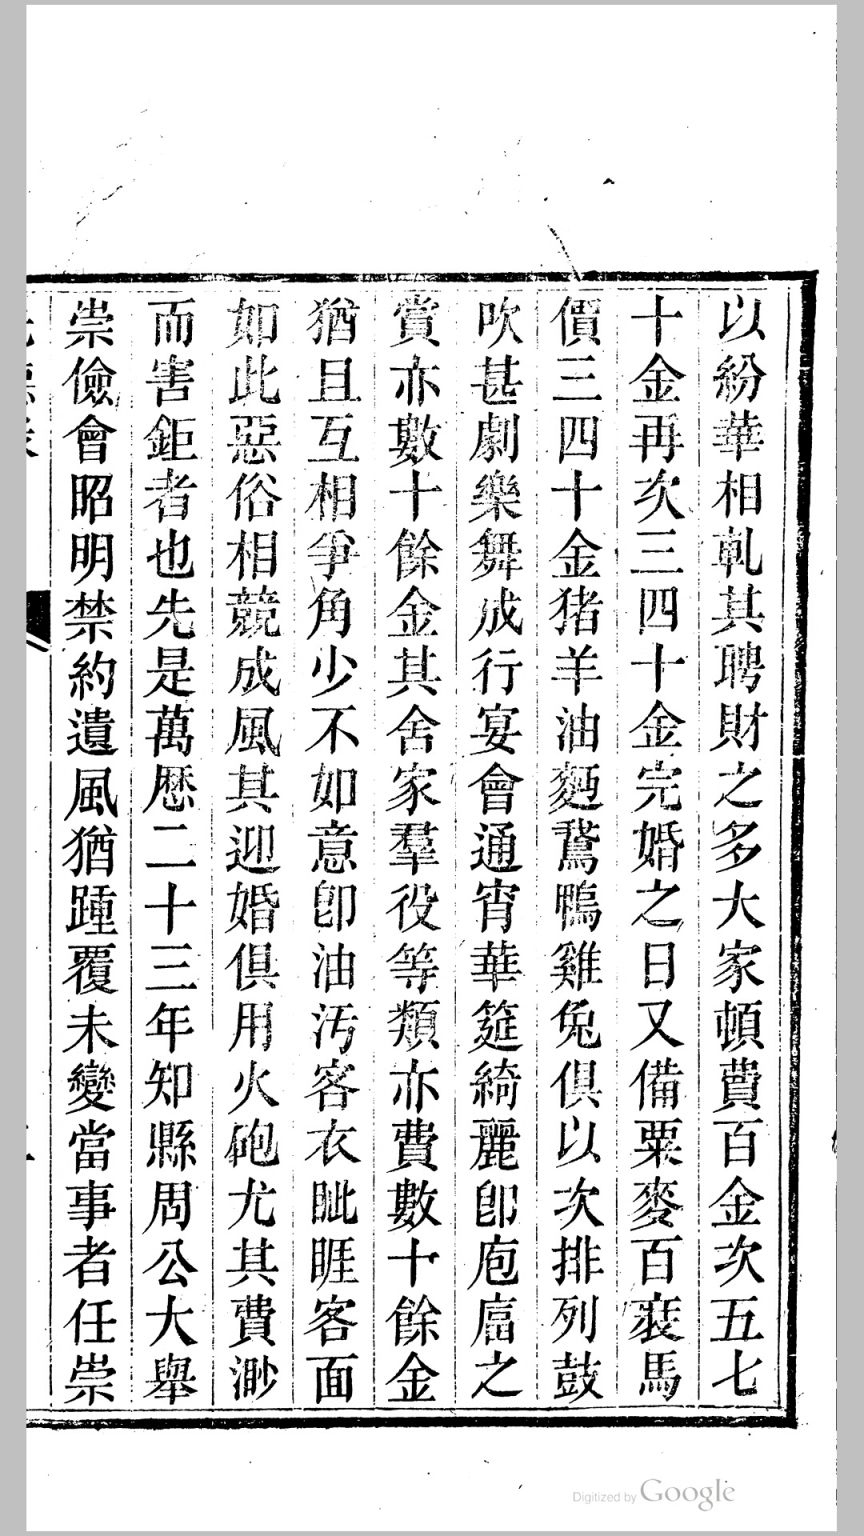 以紛華相軋其聘財之多大家頓費百金次五七
十金再次三四十金完婚之日又備粟麥百裘馬
價三四十金猪羊油麪鵞鴨雞兔俱以次排列鼓
吹甚劇樂舞成行宴會通宵華筵綺麗卽庖湢之
賞亦數十餘金其舍家羣役等類亦費數十餘金
猶且互相爭角少不如意卽油汚客衣眦睚客面
如此惡俗相競成風其迎婚俱用火砲尤其費渺
而害鉅者也先是萬厯二十三年知縣周公大舉
崇儉會昭明禁約遺風猶踵覆未變當事者任崇
Digitized by Google